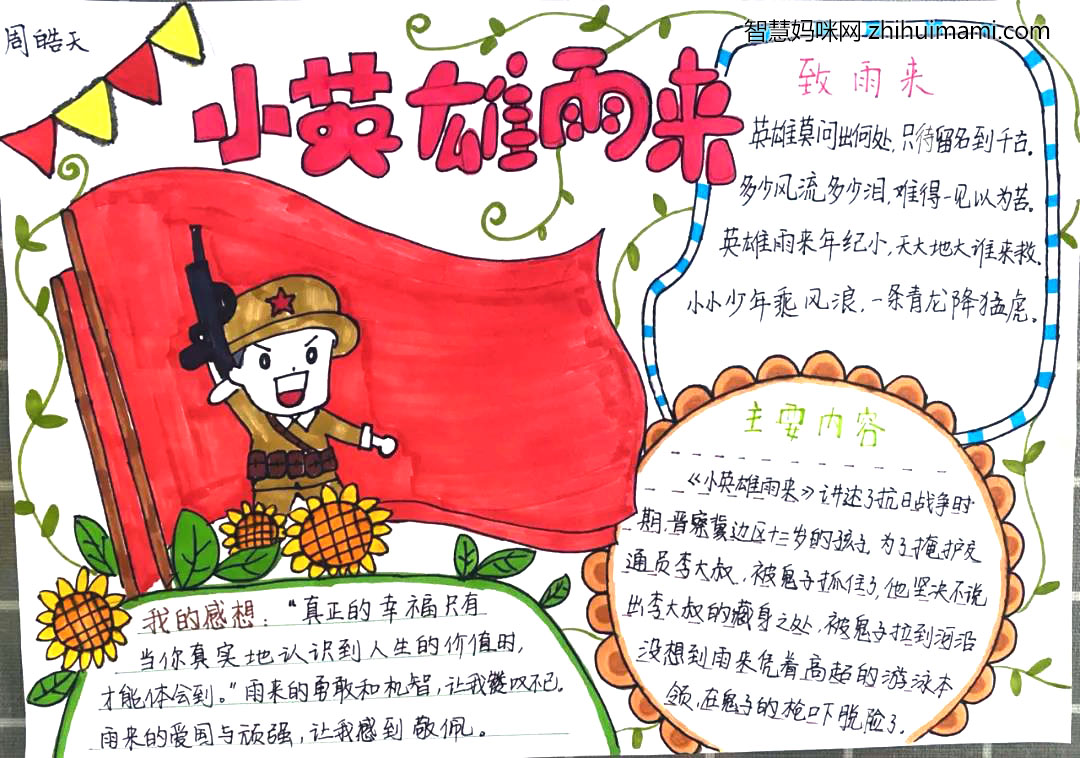 周皓天
智慧妈咪网 zhihuimami.com
小英雄雨来
致雨来
英雄莫问出何处,只待留名到千古。
多少风流多少泪,难得一见以为苦。
英雄雨来年纪小,天大地大谁来救。
小小少年乘风浪,一条青龙降猛虎。
主要内容
《小英雄雨来》讲述了抗日战争时
期,晋察冀边区十二岁的孩子,为了掩护交
通员李大叔,被鬼子抓住了,他坚决不说
出李大叔的藏身之处,被鬼子拉到河沿
没想到雨来凭着高超的游泳本
领,在鬼子的枪口下脱险了.
我的感想:"真正的幸福只有
当你真实地认识到人生的价值时,
才能体会到。"雨来的勇敢和机智,让我叹不已.
雨来的爱国与顽强,让我感到敬佩。